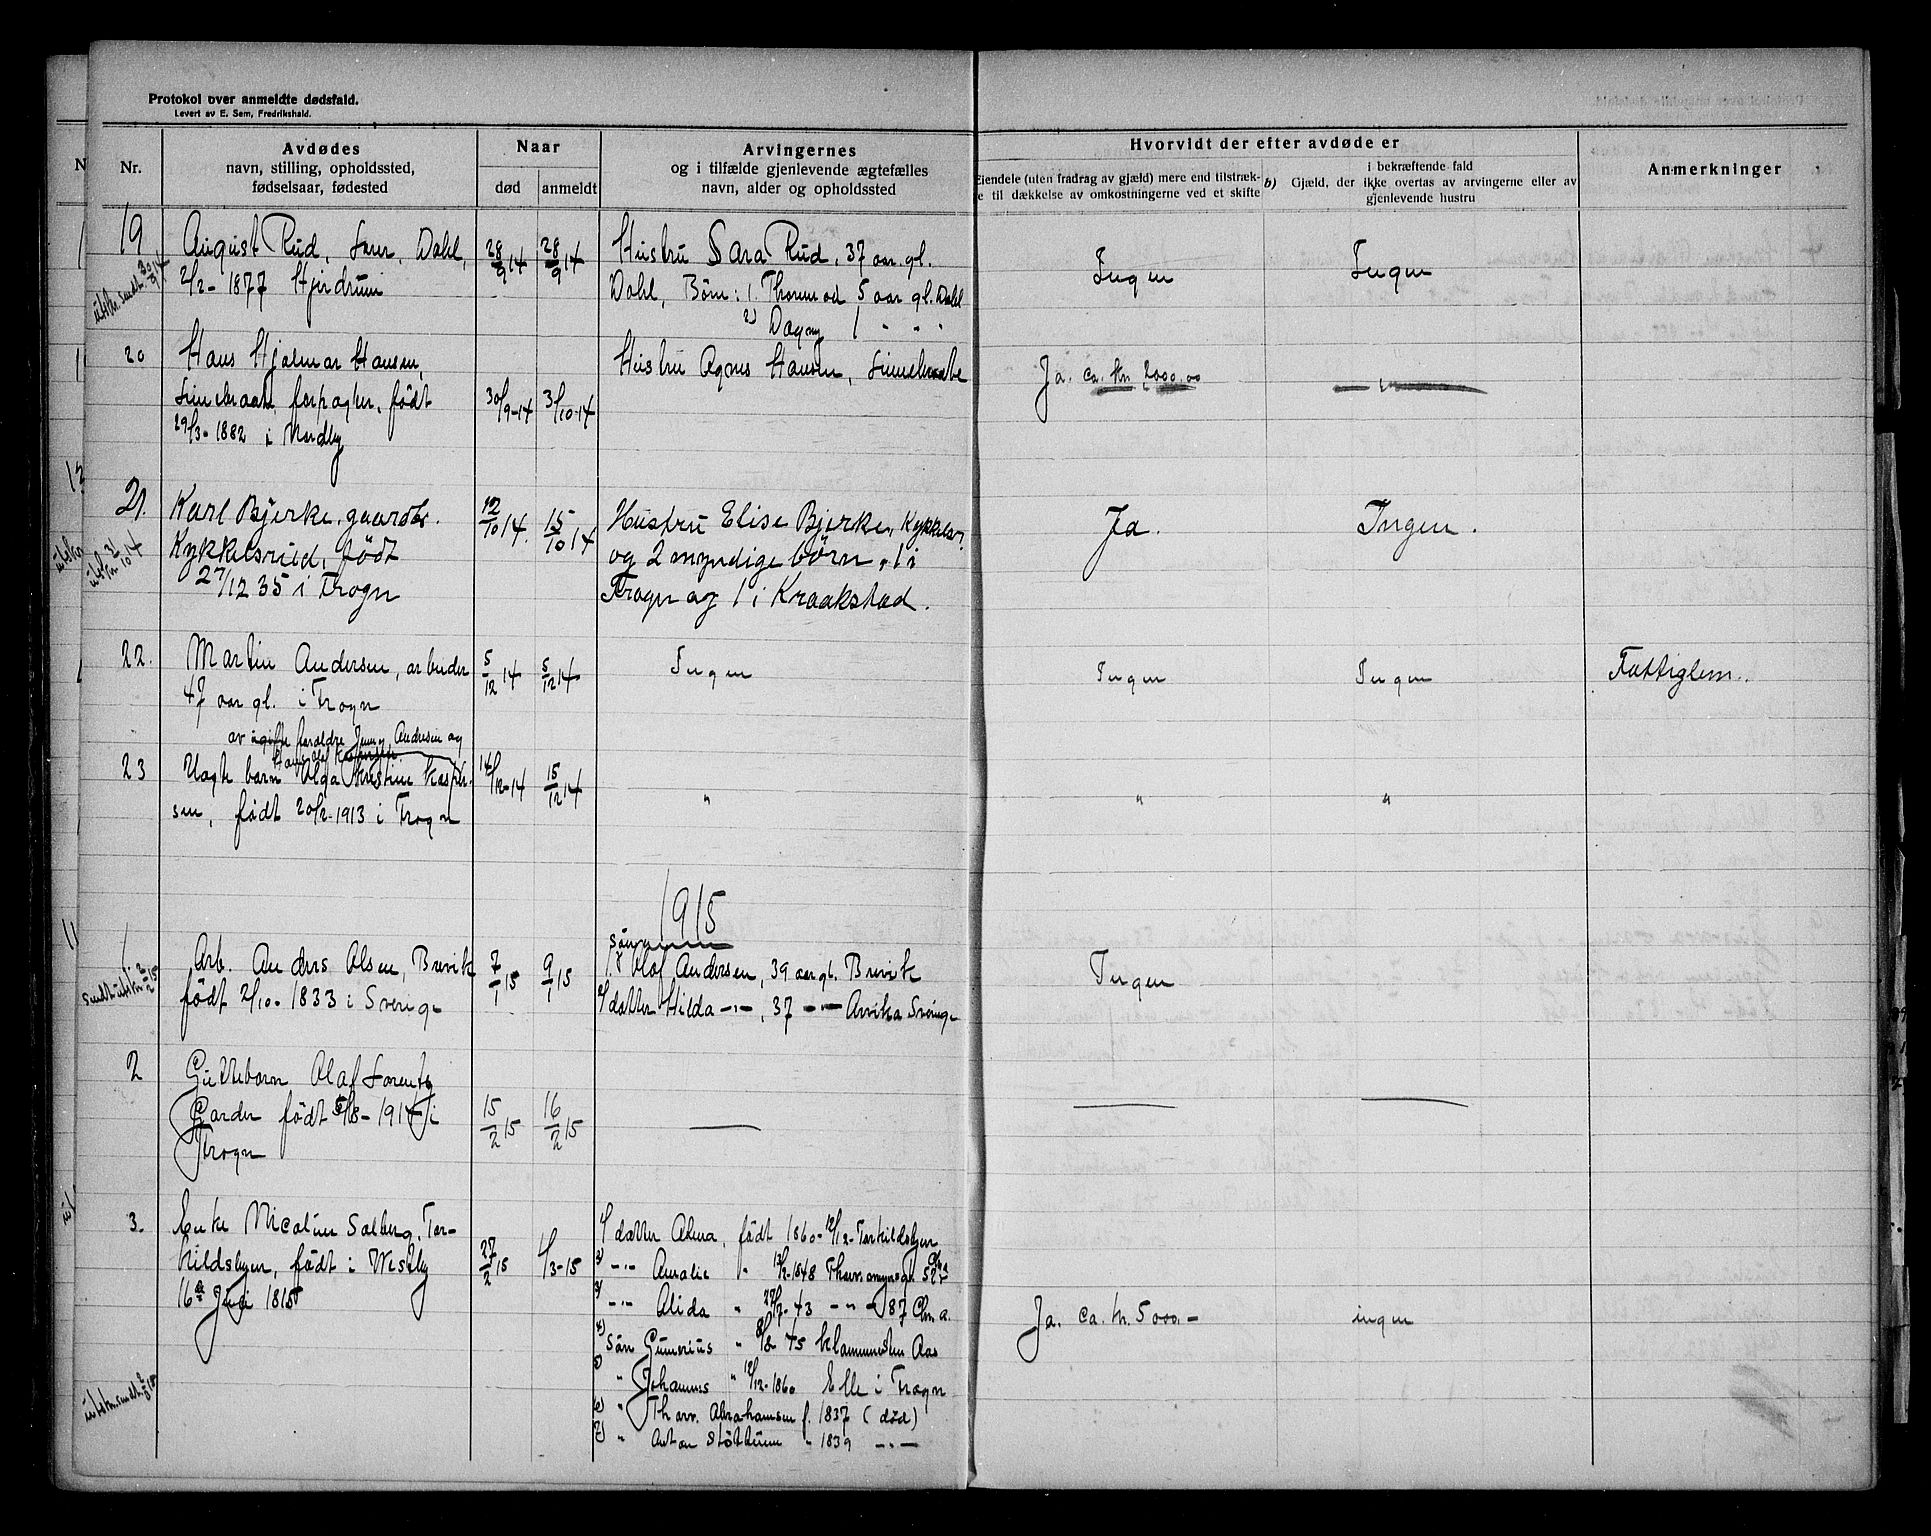 Protokol over anmeldte dødsfald.
Levert av E. Sem, Fredrikshald.
Nr.
Avdødes
navn, stilling, opholdssted,
fødselsaar, fødested
Naar
død
anmeldt
Arvingernes
og i tilfælde gjenlevende ægtefælles
navn, alder og opholdssted
Hvorvidt der efter avdøde er
Eiendele (uten fradrag av gjæld) mere end tilstræk-
e til dækkelse av omkostningerne ved et skifte
i bekræftende fald
b) Gjæld, der ikke overtas av arvingerne eller av
gjenlevende hustru
Anmerkninger
19
August Rud, Dahl,
2/2- 1877 Hjerdrum
28/9 14
28/9 14
Hustru Sara Rud, 37 aar gl.
Dahl, Børn: 1. Thormod 5 aar gl. Dahl
2) Dagny 1 " " "
Ingen
Ingen
utskr. sendt 30/9 14
20
Hans Hjalmar Hansen,
forpagter, født
29/3- 1882 i Nordby
30/9-14
3/10-14
Hustru Agnes Hansen,
Ja. ca. kr. 2000.00
21.
Karl Bjerke, gaardbr.
Kykkelsrud, født
27/12 35 i Frogn
12/10 14.
15/10 14
Hustru Elise Bjerke, Kykkelsr.
og 2 myndige børn, 1 i
Frogn og 1 i Kraakstad.
Ja.
Ingen.
utskr. 31/10 14
22.
Martin Andersen, arbeider
47 aar gl. i Frogn
5/12 14
5/12 14
Ingen
Ingen
Ingen
Fattiglem.
av ugifte forældre Jenny Andersen og
Hans Olaf Kaspersen.
23
Uægte barn Olga Kristine Kasper-
sen, født 20/2-1913 i Frogn
14/12-14
15/12 14
"
"
"
1915
1
Arb. Anders Olsen, Brevik
født 2/10- 1833 i Sverige
7/1 15
9/1 15
Søn
1. Olaf Andersen, 39 aar gl. Brevik
2/ datter Hilda -"-, 37 -"- Arvika Sverige
Ingen
sendt utskr. 2/2 15
2
Guttebarn Olaf Lorentz
Garder født 5/8- 1914 i
Frogn
15/2 15
16/2 15
3.
Enke Nicoline Solberg, Tor-
kildsbyen, født i Westby
16de Juni 1815
27/2 15
1/3-15
1/ datter Alma, født 1860-12/12- Torkildsbyen
2) -"- Amalie " 13/2-1848
3) -"- Alida " 22/7-43 -"- 87 Chr.a.
4) Søn Gunerius " 8/2 45 Aas
5) " Johannes " 12/12-1860 Elle i Frogn
6) " Thorv. Abrahamsen f. 1837 (død)
7) " Anton Støttum " 1839 -"-
Ja. ca. kr. 5000.-
ingen
utskr. sendt 2/3 15